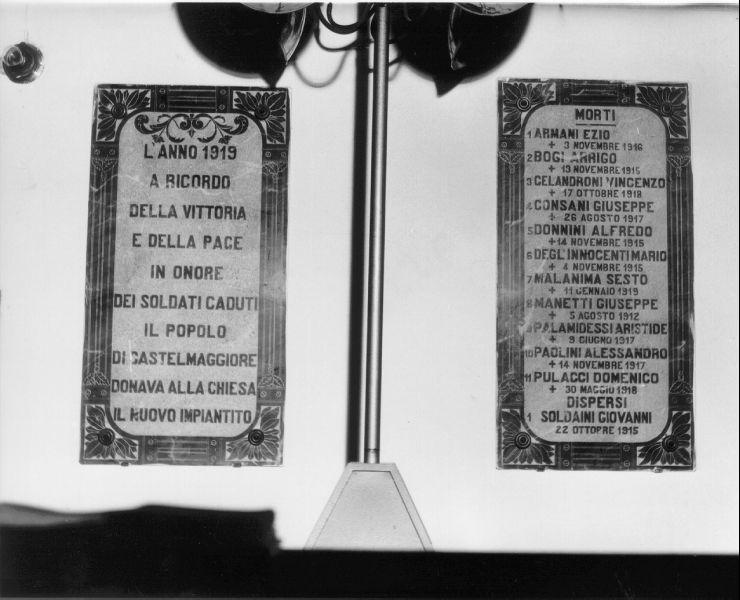 L'ANNO 1919
A RICORDO
DELLA VITTORIA
E DELLA PACE
IN ONORE
DEI SOLDATI CADUTI
IL POPOLO
DI CASTELMAGGIORE
DONAVA ALLA CHIESA
IL NUOVO IMPIANTITO
MORTI
1 ARMANI EZIO
+ 3 NOVEMBRE 1916
2 BOGI ARRIGO
+ 19 NOVEMBRE 1915
3 CELANDRONI VINCENZO
+ 17 OTTOBRE 1918
4 CONSANI GIUSEPPE
+ 26 AGOSTO 1917
5 DONNINI ALFREDO
+ 14 NOVEMBRE 1915
6 DEGL'INNOCENTI MARIO
+ 4 NOVEMBRE 1915
7 MALANIMA SESTO
+ 11 GENNAIO 1919
8 MANETTI GIUSEPPE
+ 5 AGOSTO 1912
9 PALAMIDESSI ARISTIDE
+ 9 GIUGNO 1917
10 PAOLINI ALESSANDRO
+ 14 NOVEMBRE 1917
11 PULACCI DOMENICO
+ 30 MAGGIO 1918
DISPERSI
1 SOLDAINI GIOVANNI
22 OTTOBRE 1915